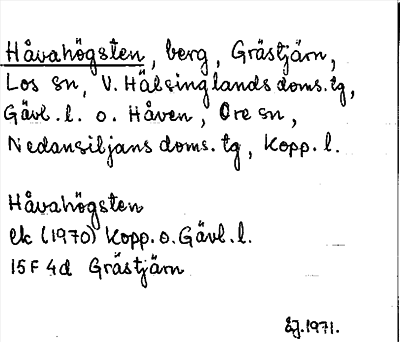 Håvahögsten, berg, Grästjärn,
Los sn, V. Hälsinglands doms.tg,
Gävl.l. o. Håven, Ore sn,
Nedansiljans doms.tg, Kopp.l.
Håvahögsten
ek (1970) Kopp.o.Gävl.l.
15F 4d Grästjärn
EJ.1971.